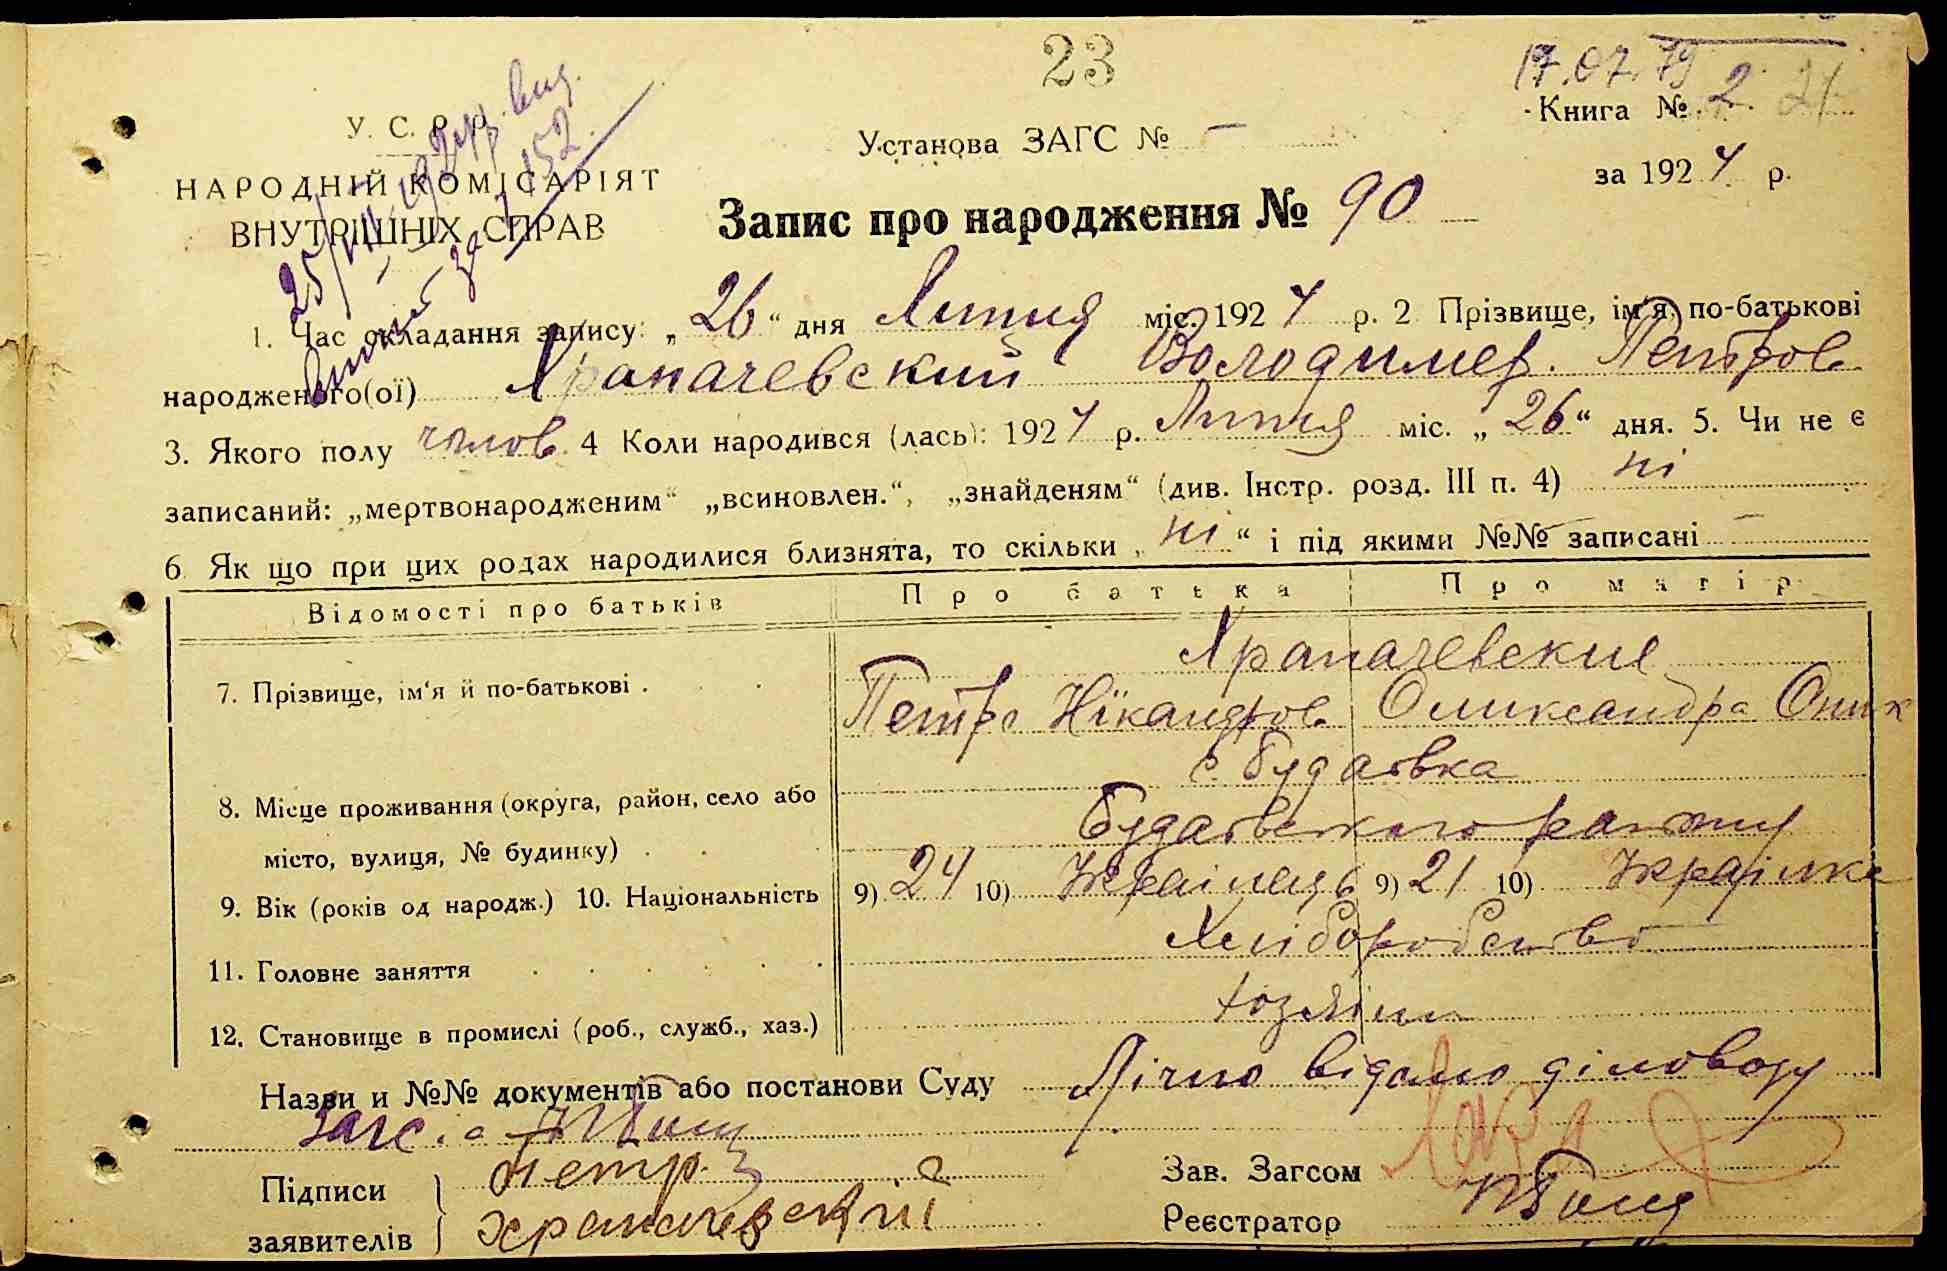 23
17.07.79
У. С. Р. Р.
Установа ЗАГС № –
Книга № 2. 21
НАРОДНІЙ КОМІСАРІЯТ
ВНУТРІШНІХ СПРАВ
за 1924 р.
Запис про народження № 90
25/VII 192 р. вид.
за № 152.
1. Час складання запису: „26“ дня Липня міс. 1924 р. 2 Прізвище, ім'я, по-батькові
народженого(ої) Храпачевский Володимер. Петров
3. Якого полу чолов. 4 Коли народився (лась): 1924 р. Липня міс. „26“ дня. 5. Чи не є
записаний: „мертвонародженим“ „всиновлен.“, „знайденям“ (див. Інстр. розд. III п. 4) ні
6 Як що при цих родах народилися близнята, то скільки „ні“ і під якими №№ записані –
Відомості про батьків Про батька Про матір
7. Прізвище, ім'я й по-батькові . Храпачевские
Петро Нікандров Олександра Оник
8. Місце проживання (округа, район, село або с. Будаївка
місто, вулиця, № будинку) . Будаївського району
9. Вік (років од народж.) 10. Національність 9) 24 10) Українець 9) 21 10) Українка
11. Головне заняття Хліборобство
12. Становище в промислі (роб., служб., хаз.) хозяіни
Назви и №№ документів або постанови Суду Лічно відомо діловоду
Загс.а
Підписи заявителів } Петр.
Храпачевский
Зав. Загсом
Реєстратор